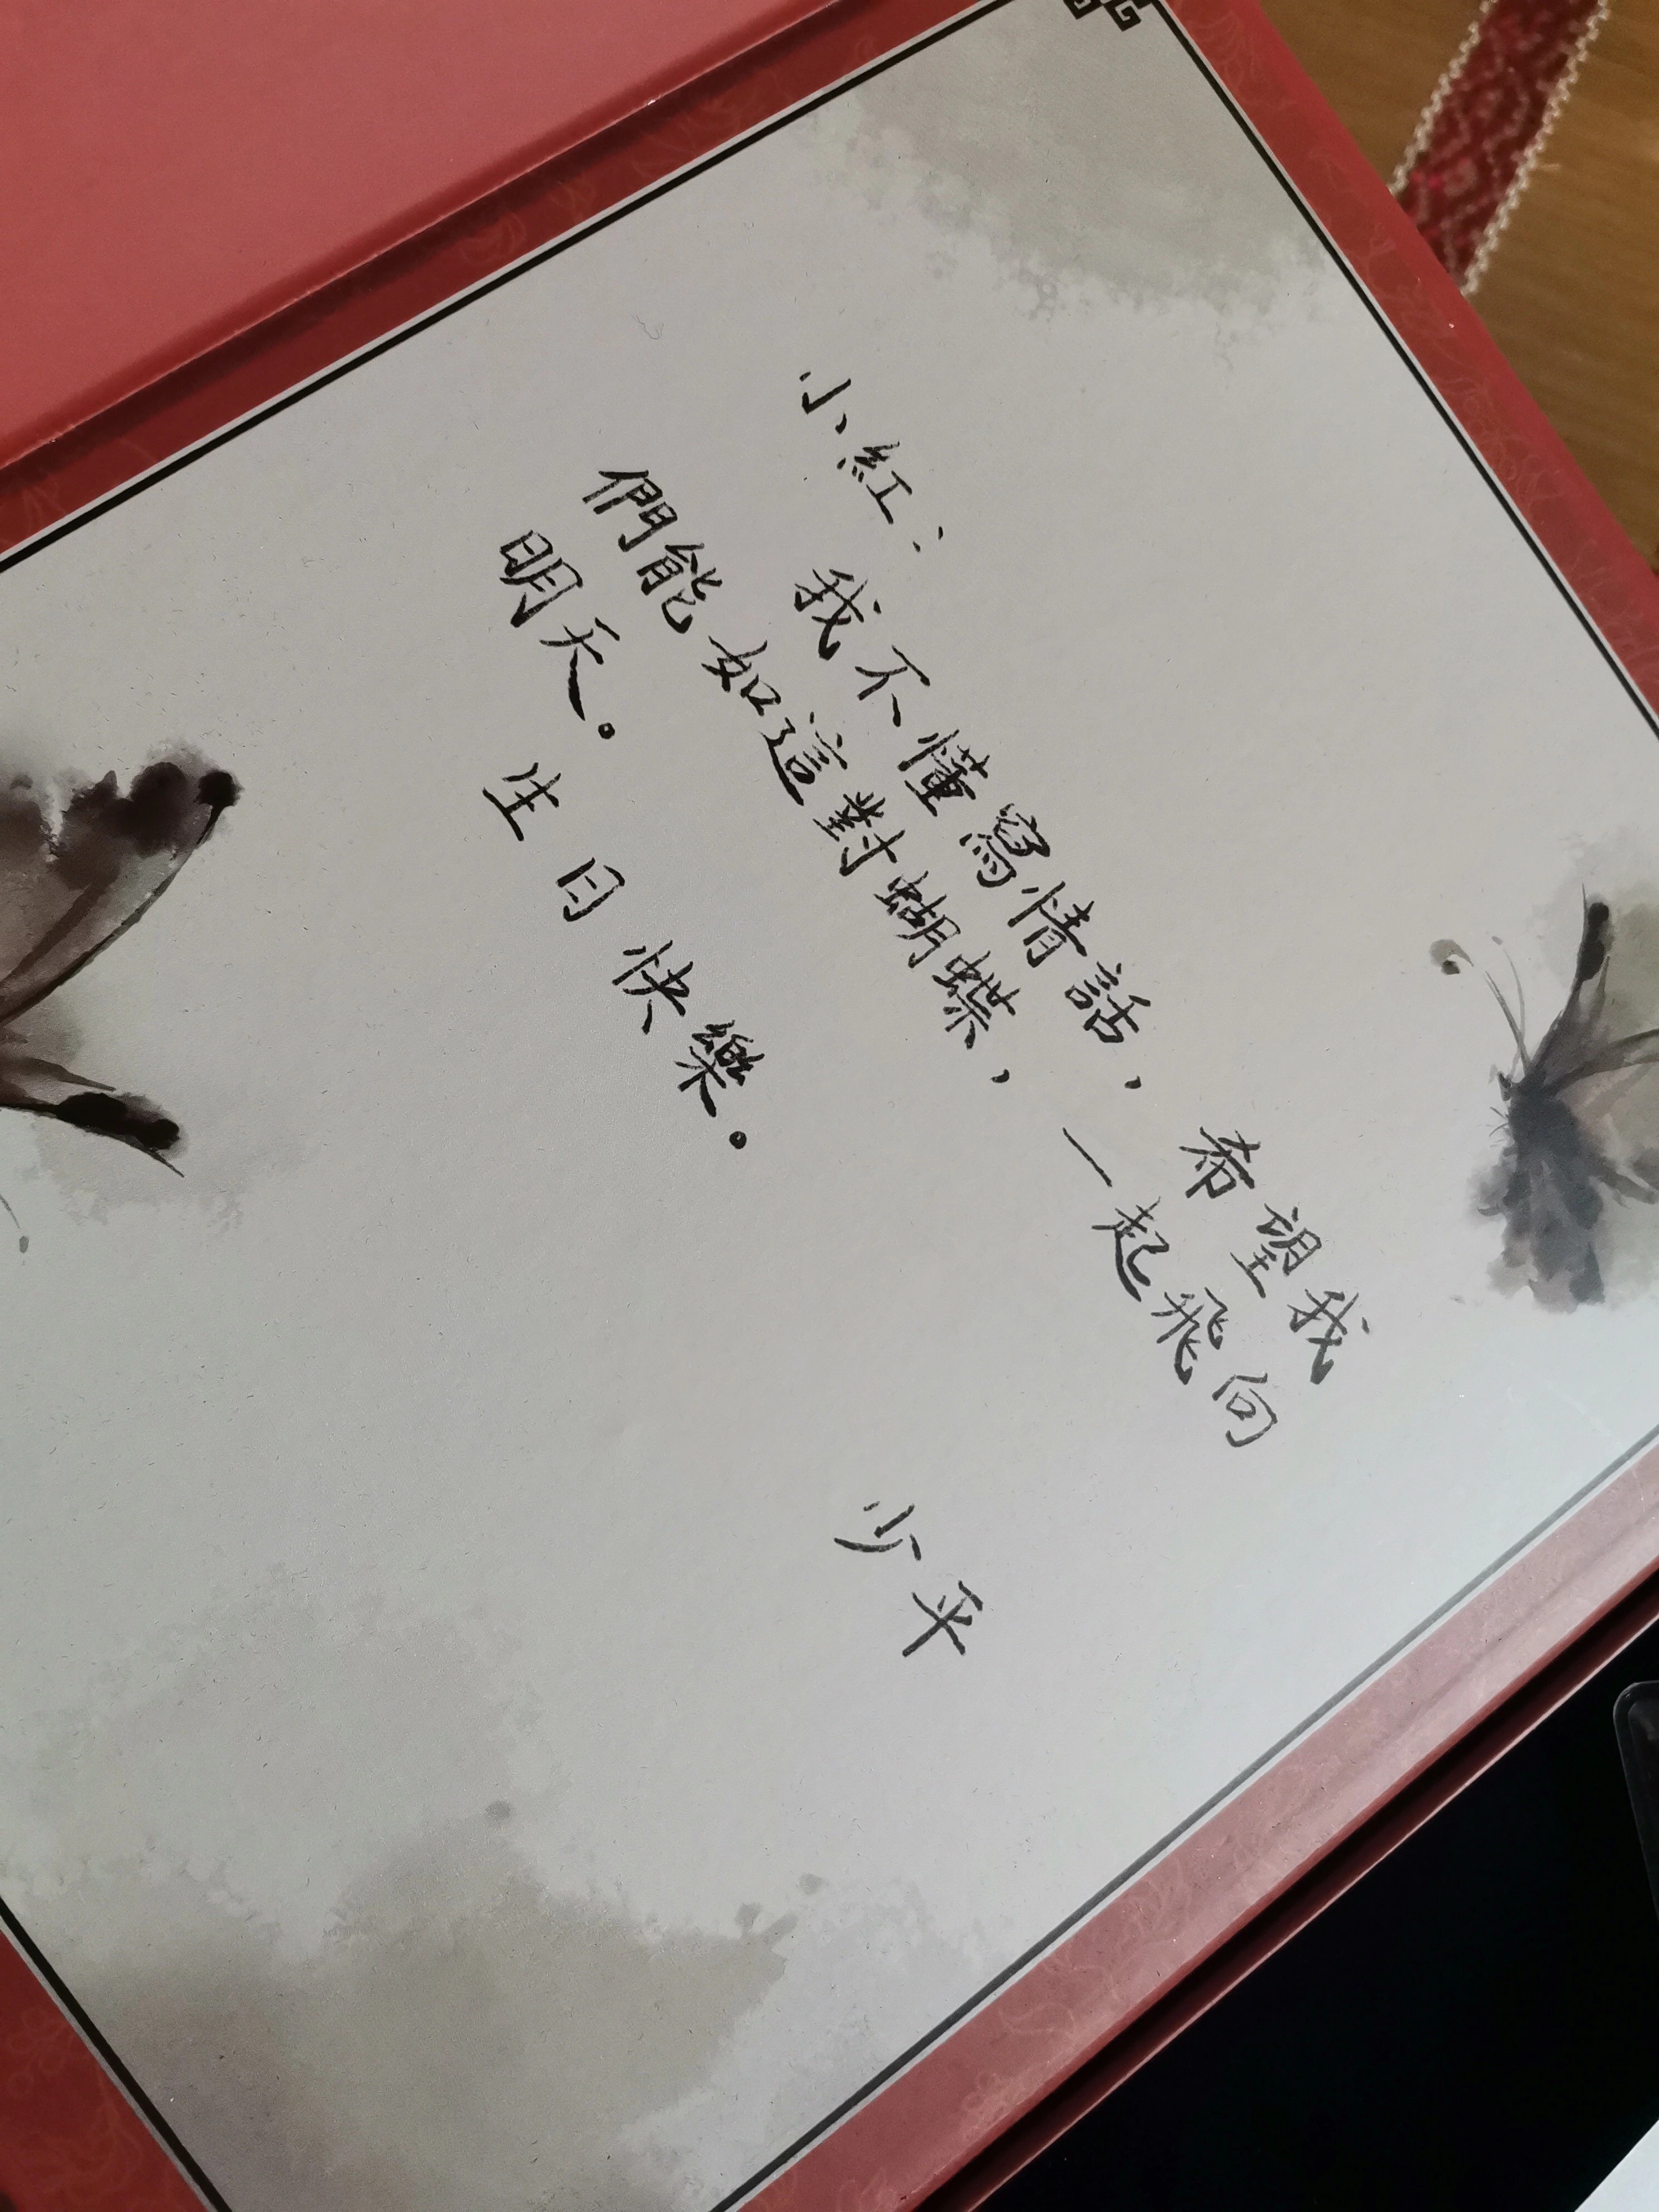 小紅：
我不懂寫情話，希望我
們能如這對蝴蝶，一起飛向
明天。
生日快樂。
少平